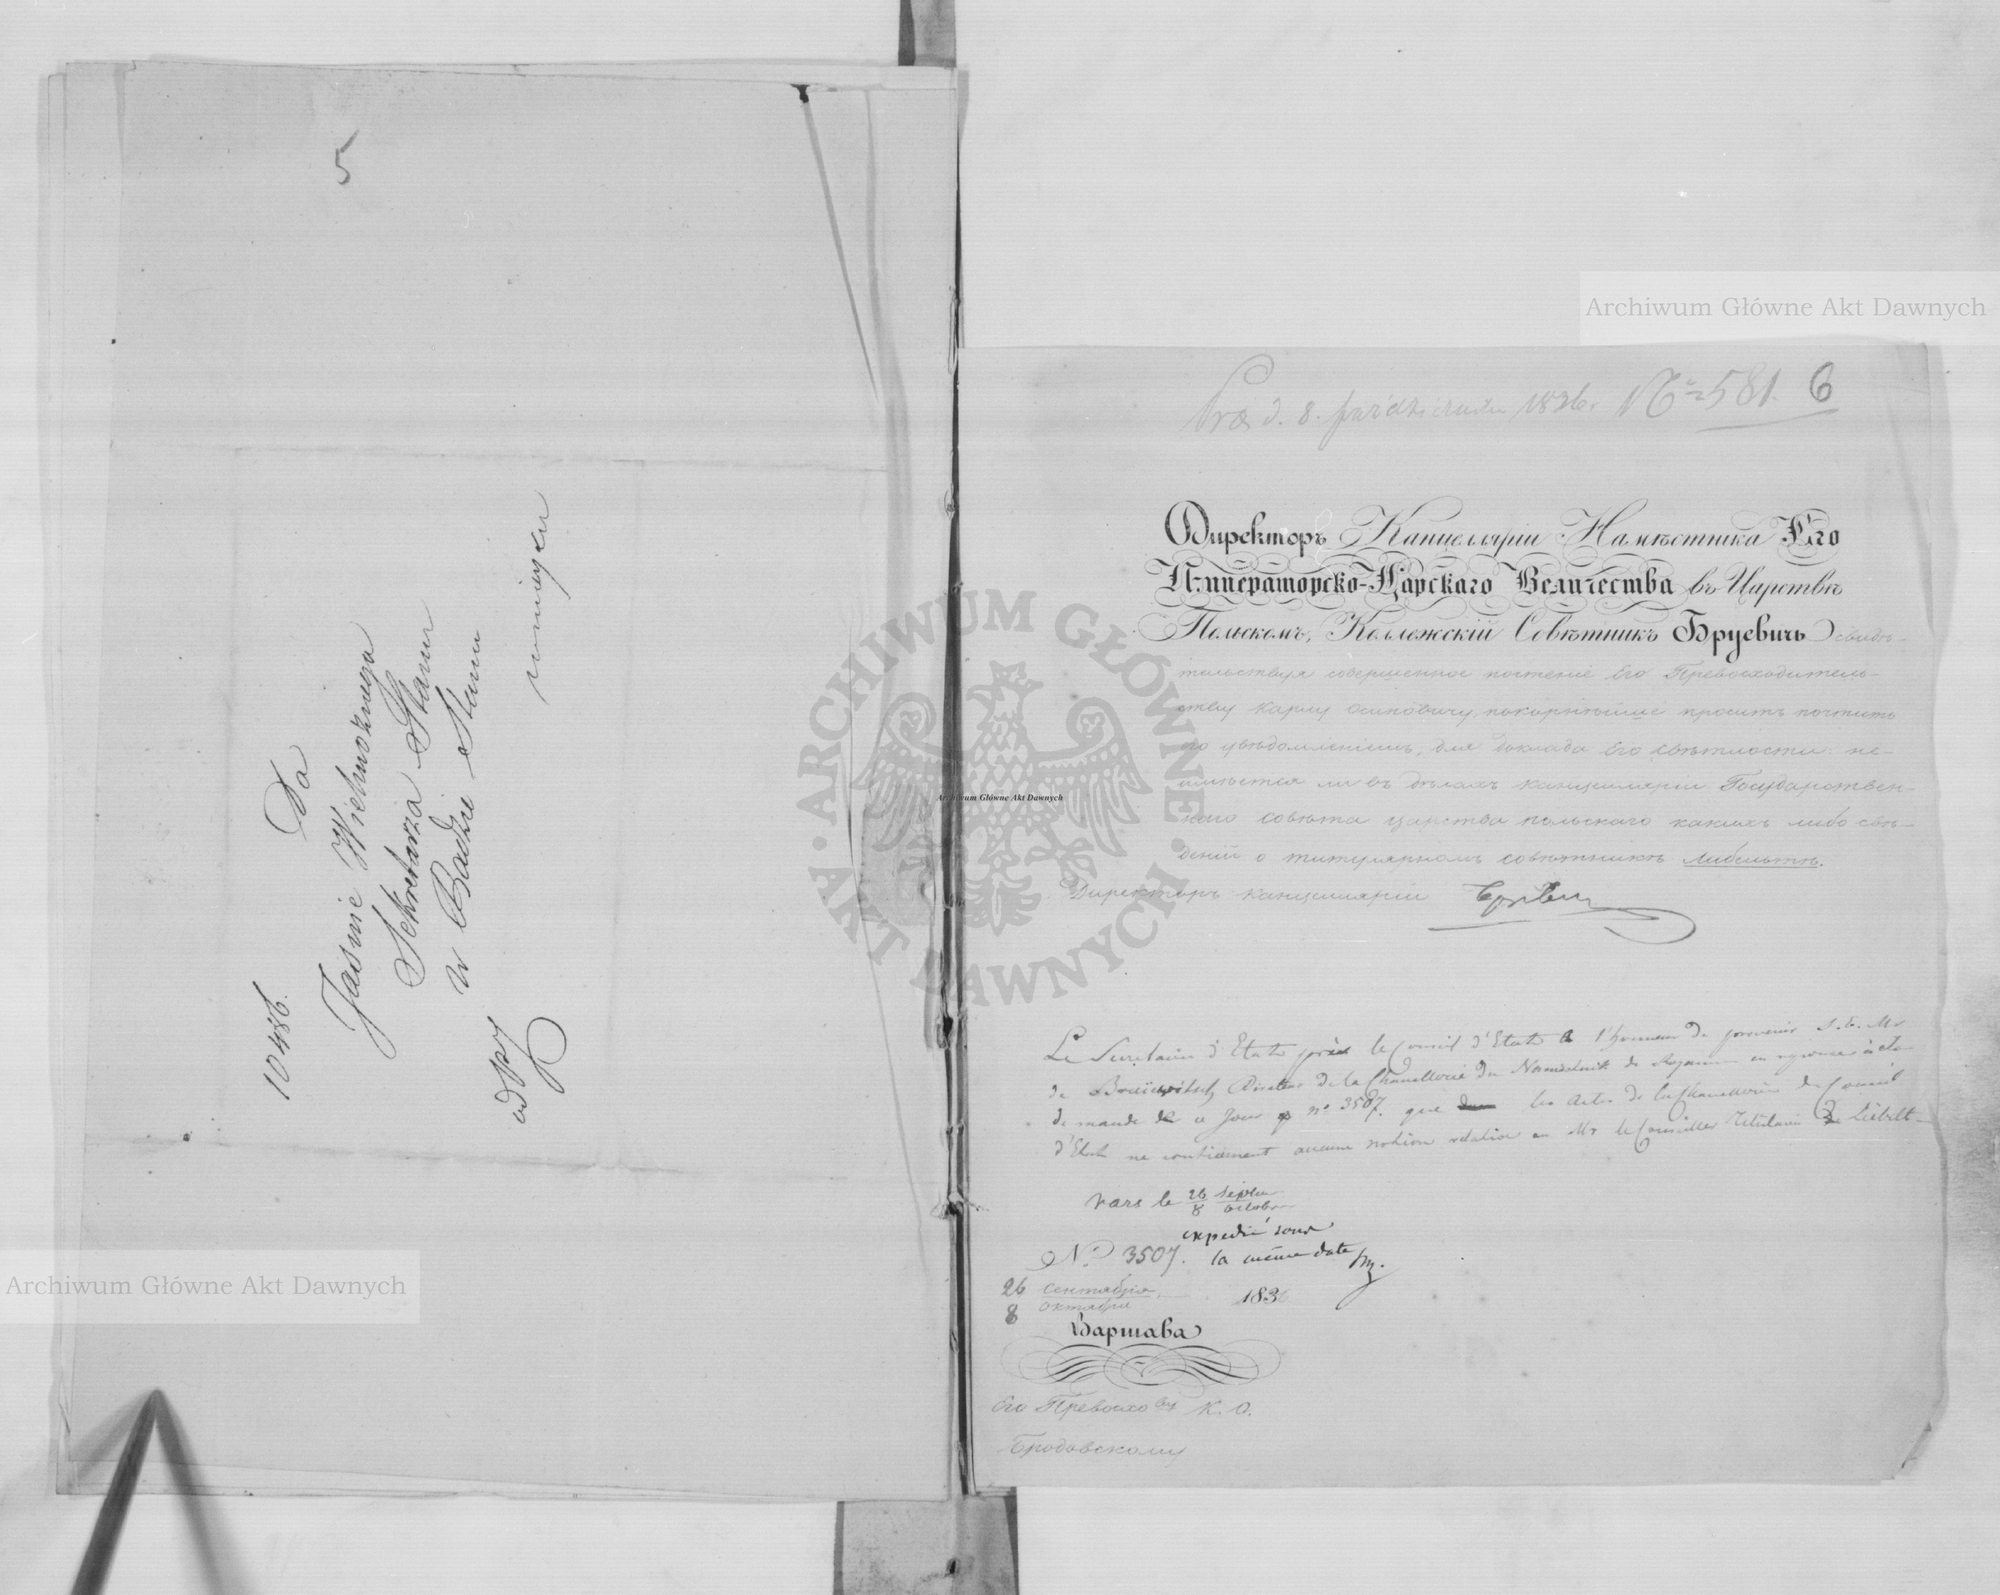 5
10486.
Do
Jaśnie Wielmożnego
Sekretarza Stanu
w Radzie Stanu
w mieyscu
Archiwum Główne Akt Dawnych
Archiwum Główne Akt Dawnych
Archiwum Główne Akt Dawnych
ARCHIWUM GŁÓWNE AKT DAWNYCH
Præs d. 8. października 1836 r. № 581. 6
Директоръ Канцелляріи Намѣстника Его
Императорско-Царскаго Величества въ Царствѣ
Польскомъ, Коллежскій Совѣтникъ Бруевичь свидѣ-
тельствуя совершенное почтеніе Его Превосходитель-
ству Карлу Осиповичу, покорнѣйше проситъ почтить
его увѣдомленіемъ, для доклада Его Свѣтлости: не-
имѣется ли въ дѣлахъ канцелляріи Государствен-
наго совѣта царства польскаго какихъ либо свѣ-
деній о титулярномъ совѣтникѣ Либельтѣ.
Директоръ канцелляріи
Le Secretaire d'Etat près le Conseil d'Etat a l'honneur de prevenir S. E. Mr
de Bruïewitsch Directeur de la Chancellerie du Namestnik du Royaume en reponse à la
demande de ce jour № 3507. que les actes de la Chancellerie du Conseil
d'Etat ne contiennent aucune notion relative a Mr le Conseiller Titulaire de Liebelt
Vars le 26 septbre
8 octobre
expedié sous
la même date
№ 3507.
26 сентября
8 октября
1836
Варшава
Его Превосхо ву К. О.
Бродовскому